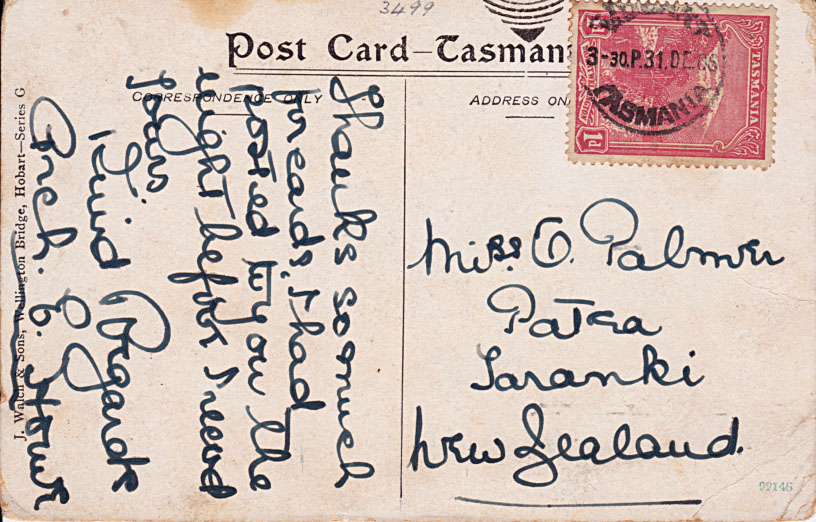 3499
Post Card–Tasman
CORRESPONDENCE ONLY
ADDRESS ON
TASMANIA
1d
1d
3-30.P.31.DE.05
TASMANIA
Thanks so much
for cards, I had
posted to you the
night before I recvd
yours
Kind Regards
Arch. E.
Miss. O. Palmer
Patea
Taranki
New Zealand.
J. Walch & Sons, Wellington Bridge, Hobart—Series G
99146